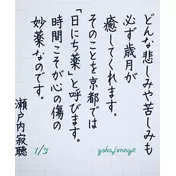 どんな悲しみや苦しみも
必ず歳月が
癒してくれます。
そのことを京都では
「日にち薬」と呼びます。
時間こそが心の傷の
妙薬なのです。
瀬戸内寂聴
1/3